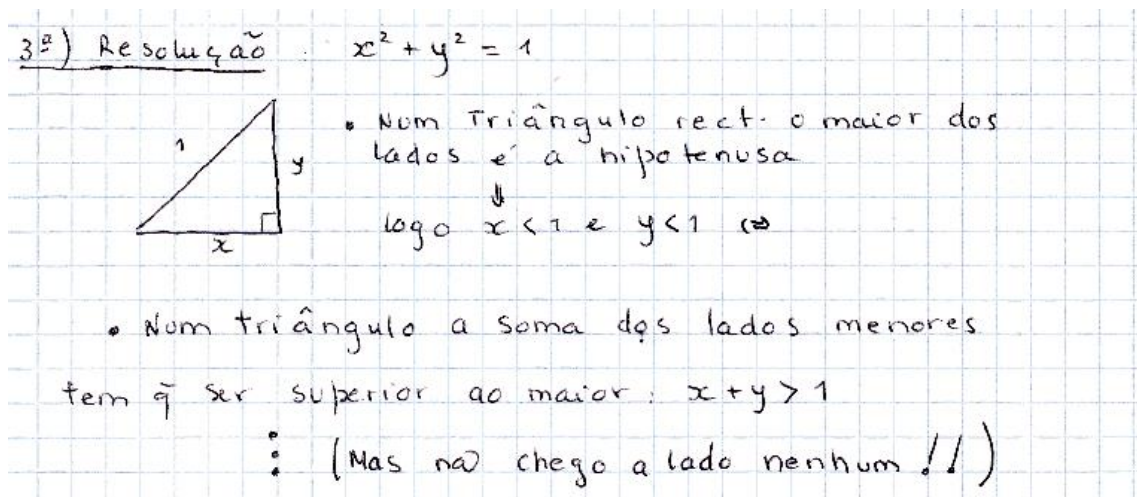 3ª) Resolução : x² + y² = 1
1
y
x
• Num Triângulo rect. o maior dos
lados é a hipotenusa
⇓
logo x < 1 e y < 1 ⇔
• Num triângulo a soma dos lados menores
tem q̃ ser superior ao maior : x + y > 1
⋮ (Mas não chego a lado nenhum !!)